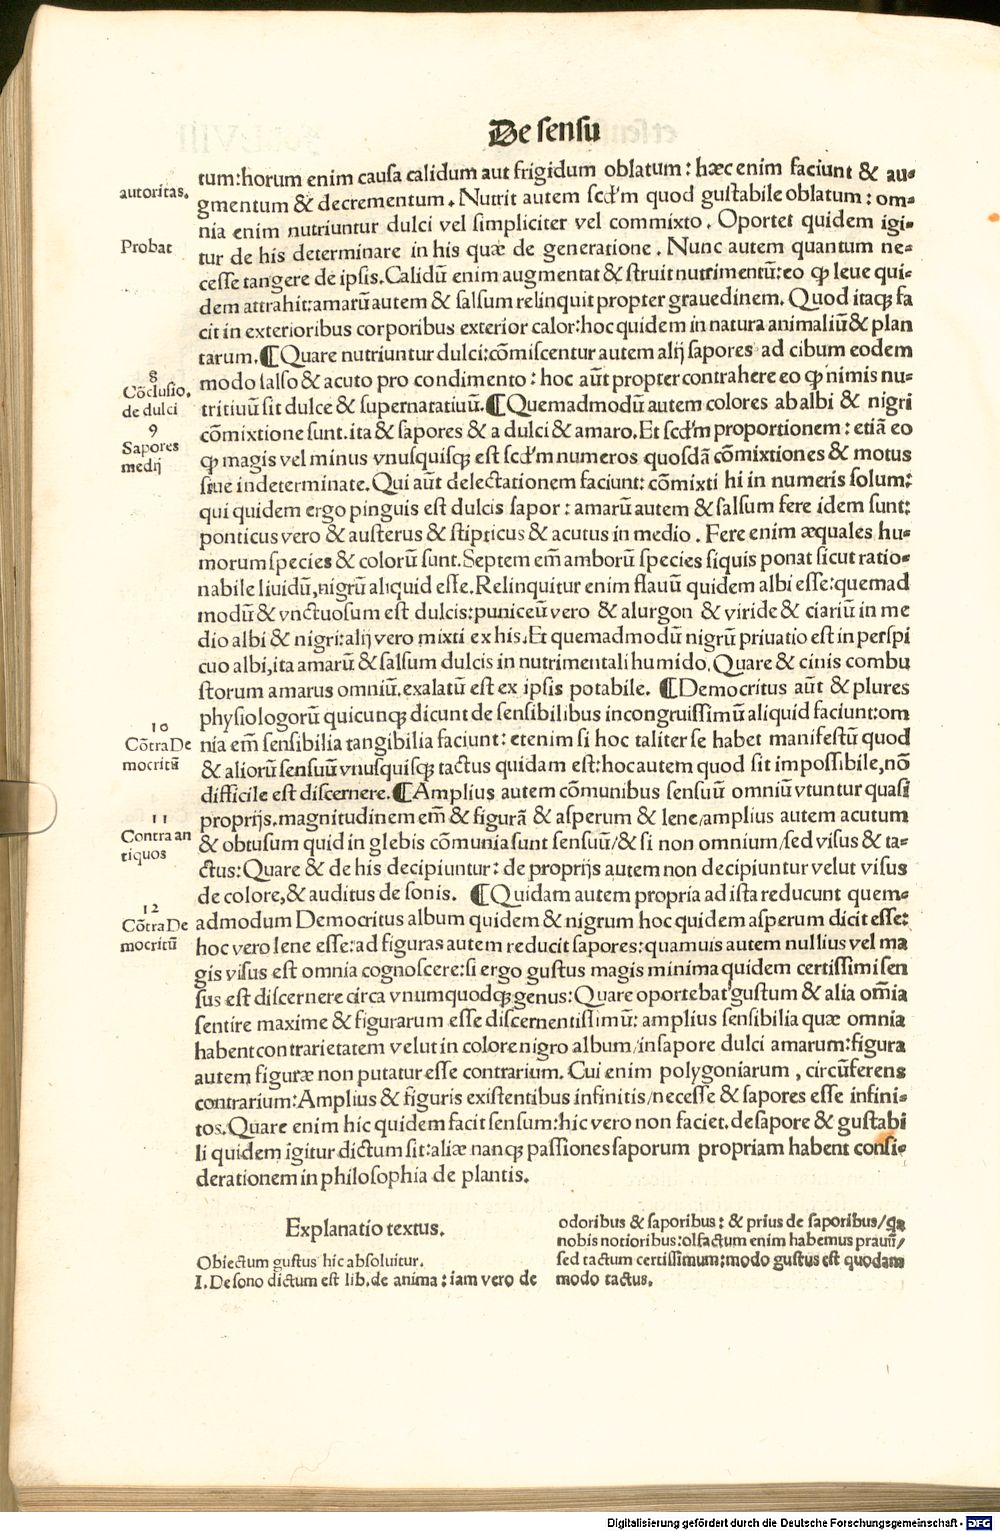 De sensu
tum:horum enim causa calidum aut frigidum oblatum: hæc enim faciunt & au-
gmentum & decrementum. Nutrit autem scd'm quod gustabile oblatum: om-
nia enim nutriuntur dulci vel simpliciter vel commixto. Oportet quidem igi-
tur de his determinare in his quæ de generatione. Nunc autem quantum ne-
cesse tangere de ipsis. Calidū enim augmentat & struit nutrimentū: eo ꝙ leue qui-
dem attrahit: amarū autem & salsum relinquit propter grauedinem. Quod itaqꝫ fa
cit in exterioribus corporibus exterior calor: hoc quidem in natura animaliū & plan
tarum. ¶Quare nutriuntur dulci: cōmiscentur autem alij sapores ad cibum eodem
modo salso & acuto pro condimento: hoc aūt propter contrahere eo ꝙ nimis nu-
tritiuū sit dulce & supernatatiuū. ¶Quemadmodū autem colores ab albi & nigri
cōmixtione sunt. ita & sapores & a dulci & amaro. Et scd'm proportionem: etiā eo
ꝙ magis vel minus vnusquisqꝫ est scd'm numeros quosdā cōmixtiones & motus
siue indeterminate. Qui aūt delectationem faciunt: cōmixti hi in numeris solum:
qui quidem ergo pinguis est dulcis sapor: amarū autem & salsum fere idem sunt:
ponticus vero & austerus & stipticus & acutus in medio. Fere enim æquales hu-
morum species & colorū sunt. Septem em̄ amborū species siquis ponat sicut ratio-
nabile liuidū, nigrū aliquid esse. Relinquitur enim flauū quidem albi esse: quemad
modū & vnctuosum est dulcis: puniceū vero & alurgon & viride & ciariū in me
dio albi & nigri: alij vero mixti ex his. Et quemadmodū nigrū priuatio est in perspi
cuo albi, ita amarū & salsum dulcis in nutrimentali humido. Quare & cinis combu
storum amarus omniū. exalatū est ex ipsis potabile. ¶Democritus aūt & plures
physiologorū quicunqꝫ dicunt de sensibilibus incongruissimū aliquid faciunt: om
nia em̄ sensibilia tangibilia faciunt: etenim si hoc taliter se habet manifestū quod
& aliorū sensuū vnusquisqꝫ tactus quidam est: hoc autem quod sit impossibile, nō
difficile est discernere. ¶Amplius autem cōmunibus sensuū omniū vtuntur quasi
proprijs. magnitudinem em̄ & figurā & asperum & lene/amplius autem acutum
& obtusum quid in glebis cōmunia sunt sensuū/& si non omnium/sed visus & ta-
ctus: Quare & de his decipiuntur: de proprijs autem non decipiuntur velut visus
de colore, & auditus de sonis. ¶Quidam autem propria ad ista reducunt quem-
admodum Democritus album quidem & nigrum hoc quidem asperum dicit esse:
hoc vero lene esse: ad figuras autem reducit sapores: quamuis autem nullius vel ma
gis visus est omnia cognoscere: si ergo gustus magis minima quidem certissimi sen
sus est discernere circa vnumquodqꝫ genus: Quare oportebat gustum & alia om̄ia
sentire maxime & figurarum esse discernentissimū: amplius sensibilia quæ omnia
habent contrarietatem velut in colore nigro album/in sapore dulci amarum: figura
autem figuræ non putatur esse contrarium. Cui enim polygoniarum, circūferens
contrarium: Amplius & figuris existentibus infinitis/necesse & sapores esse infini-
tos. Quare enim hic quidem facit sensum: hic vero non faciet. de sapore & gustabi
li quidem igitur dictum sit: aliæ nanqꝫ passiones saporum propriam habent consi-
derationem in philosophia de plantis.
autoritas.
Probat
8
Cōclusio.
de dulci
9
Sapores
medij
10
Cōtra De
mocritū
11
Contra an
tiquos
12
Cōtra De
mocritū
Explanatio textus.
Obiectum gustus hic absoluitur.
I. De sono dictum est lib. de anima: iam vero de
odoribus & saporibus: & prius de saporibus/qa
nobis notioribus: olfactum enim habemus prauū/
sed tactum certissimum: modo gustus est quodam
modo tactus.
Digitalisierung gefördert durch die Deutsche Forschungsgemeinschaft - DFG